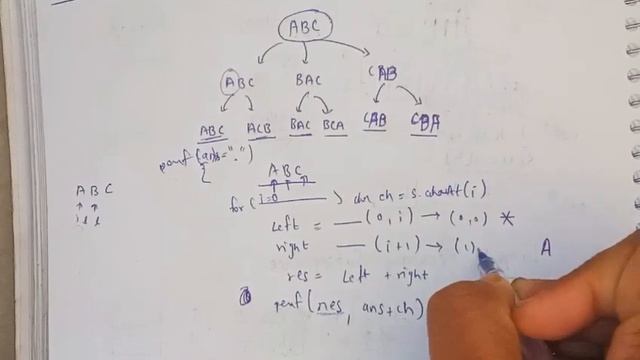 ABC
ABC BAC CAB
ABC ACB BAC BCA CAB CBA
permf(ans=".")
{
ABC
ABC
for( i=0 ) char ch = s.charAt(i)
i i
left = — (0, i) → (0,0) *
right — (i+1) → (1) A
res = left + right
permf(res, ans+ch)